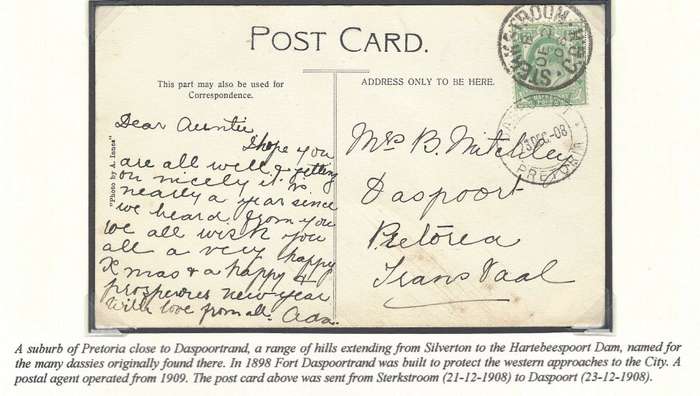 POST CARD.
This part may also be used for
Correspondence.
ADDRESS ONLY TO BE HERE.
"Photo by A. Innes"
Dear Auntie
I hope you
are all well & getting
on nicely it is
nearly a year since
we heard from you
we all wish you
all a very happy
Xmas & a happy &
prosperres new year
With love from all. Ada.
Mrs B. Mitchley
Daspoort
Pretorea
Transvaal
STERKSTROOM
23 DEC-08
PRETORIA
A suburb of Pretoria close to Daspoortrand, a range of hills extending from Silverton to the Hartebeespoort Dam, named for
the many dassies originally found there. In 1898 Fort Daspoortrand was built to protect the western approaches to the City. A
postal agent operated from 1909. The post card above was sent from Sterkstroom (21-12-1908) to Daspoort (23-12-1908).